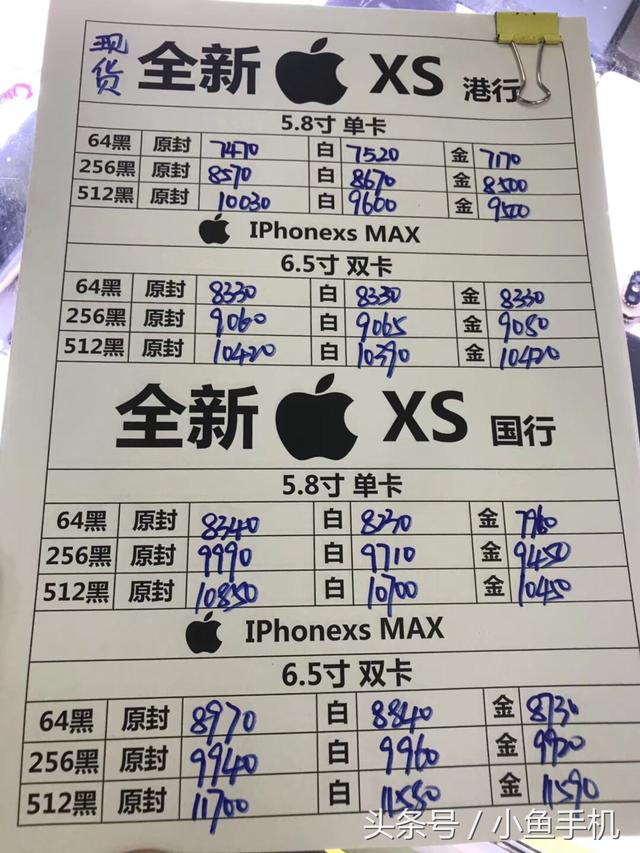 现货 全新 XS 港行
5.8寸 单卡
64黑 原封 7470 白 7520 金 7170
256黑 原封 8570 白 8670 金 8500
512黑 原封 10030 白 9600 金 9500
IPhonexs MAX
6.5寸 双卡
64黑 原封 8330 白 8330 金 8330
256黑 原封 9060 白 9065 金 9050
512黑 原封 10420 白 10390 金 10420
全新 XS 国行
5.8寸 单卡
64黑 原封 8340 白 8230 金 7960
256黑 原封 9990 白 9710 金 9450
512黑 原封 10850 白 10700 金 10450
IPhonexs MAX
6.5寸 双卡
64黑 原封 8970 白 8840 金 8730
256黑 原封 9940 白 9960 金 9920
512黑 原封 11700 白 11550 金 11590
头条号 / 小鱼手机